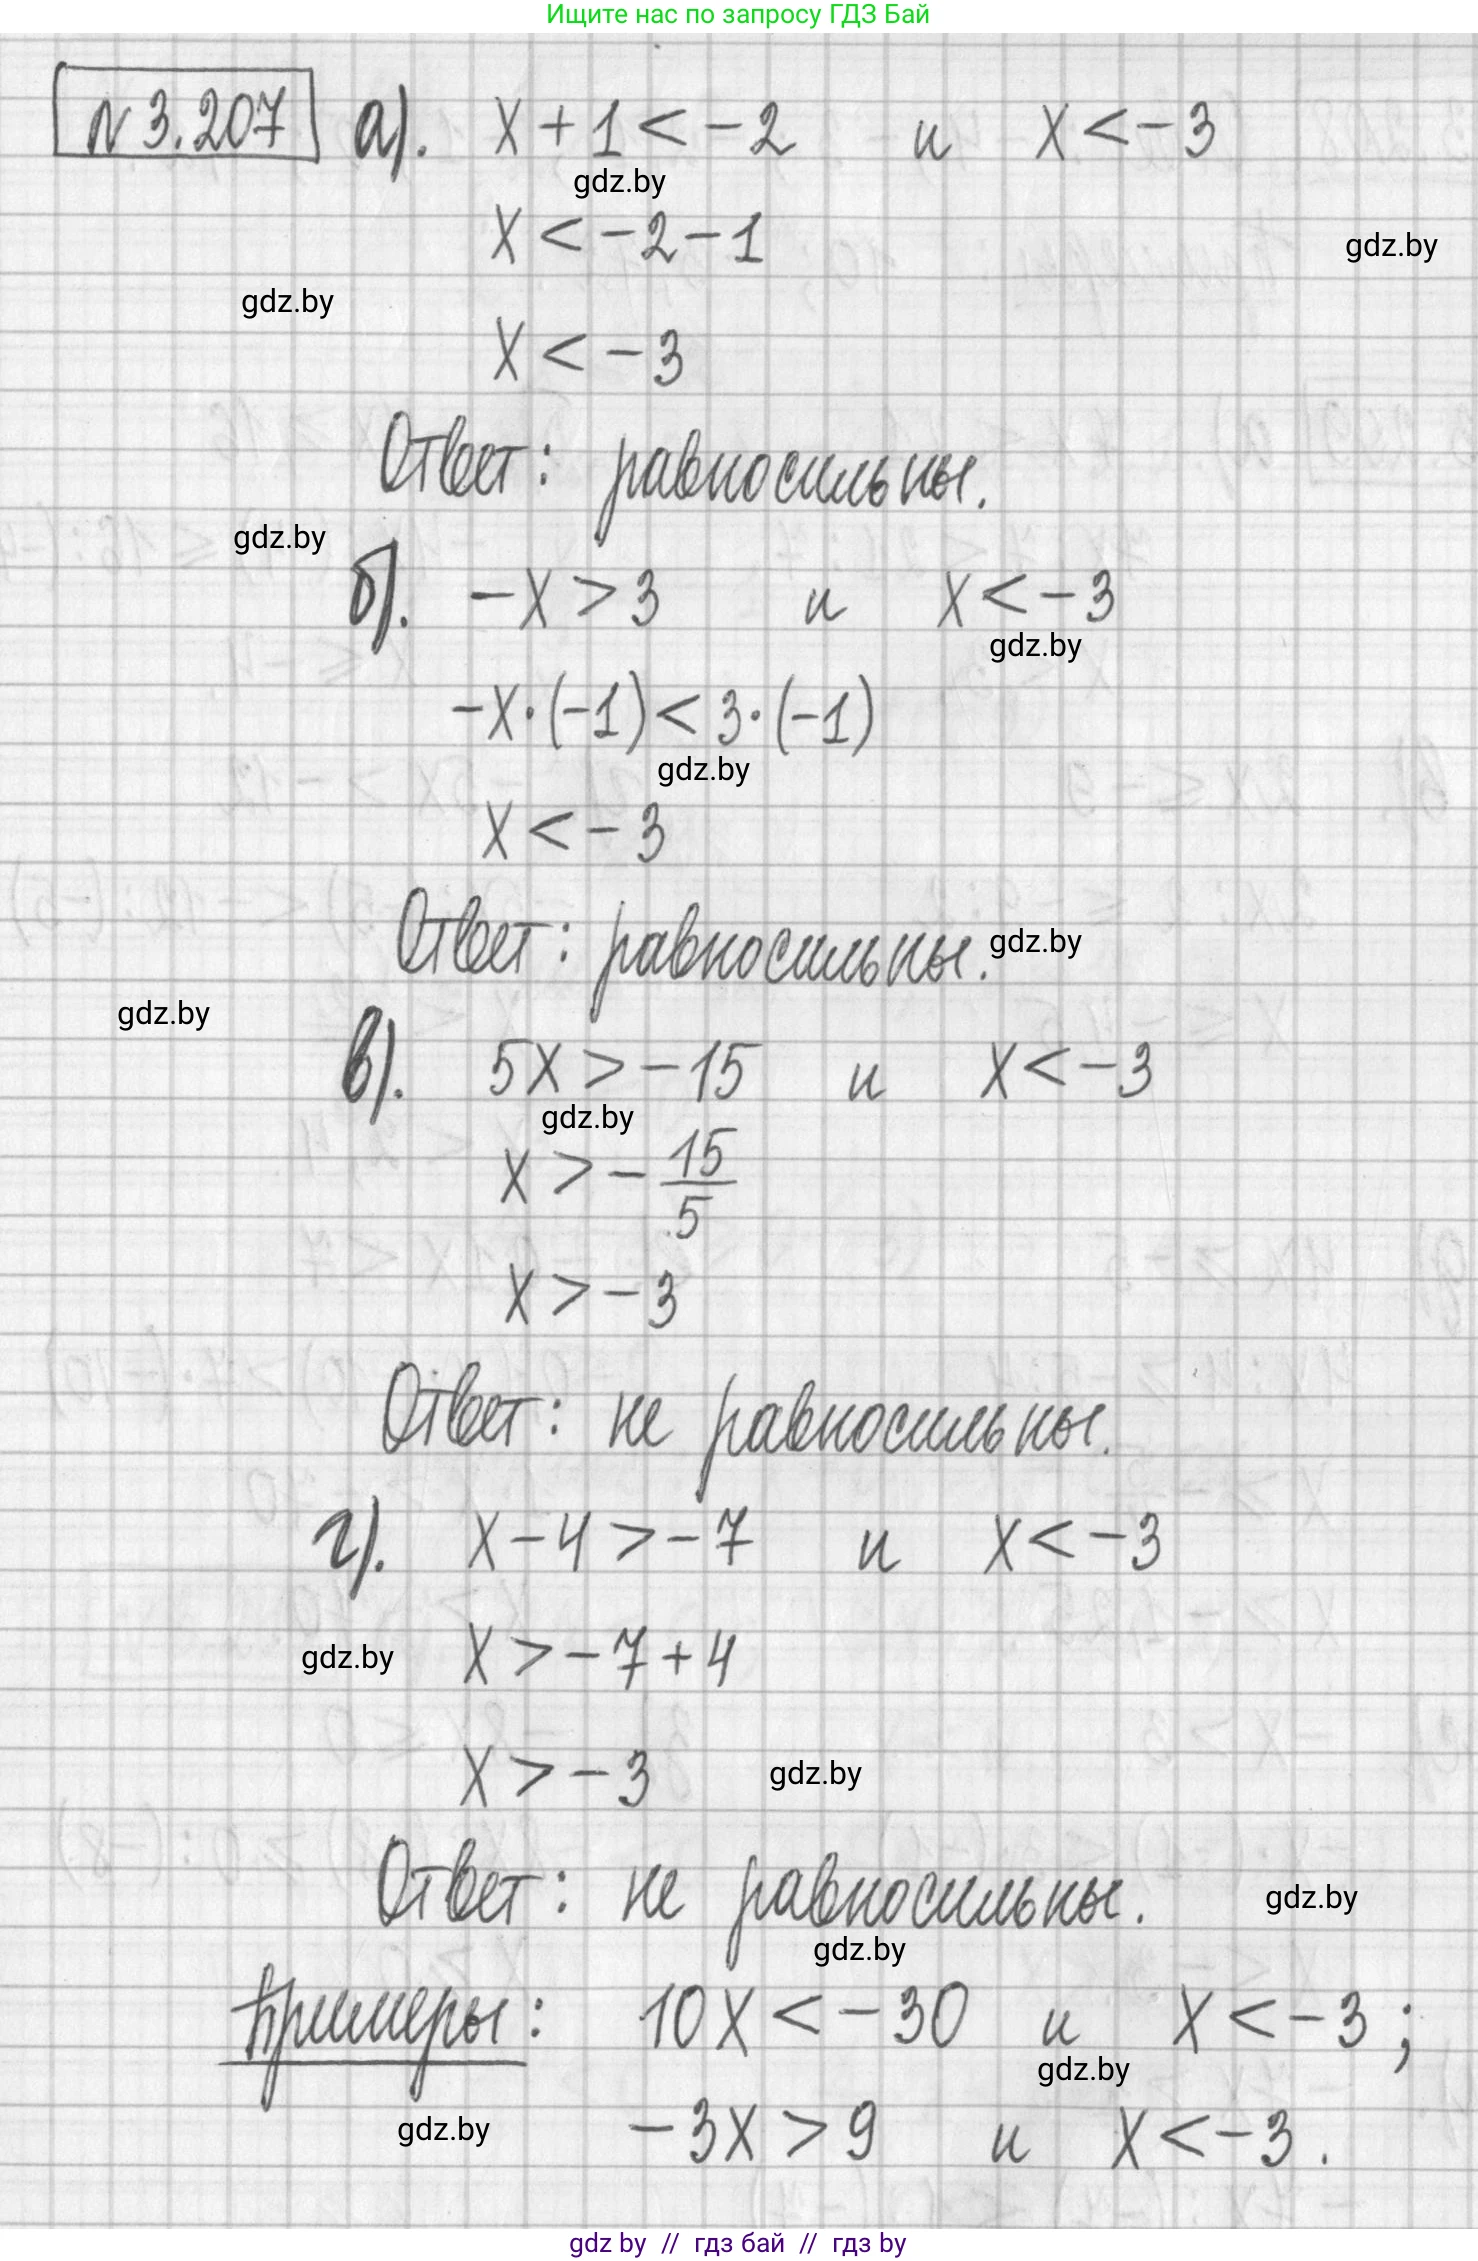 Ищите нас по запросу ГДЗ Бай
N 3.207 а). x + 1 < -2 и x < -3
gdz.by
x < -2 - 1
gdz.by
gdz.by
x < -3
Ответ: равносильны.
gdz.by
б). -x > 3 и x < -3
gdz.by
-x·(-1) < 3·(-1)
gdz.by
x < -3
Ответ: равносильны.
gdz.by
gdz.by
в). 5x > -15 и x < -3
gdz.by
x > - 15/5
x > -3
Ответ: не равносильны.
г). x - 4 > -7 и x < -3
gdz.by
x > -7 + 4
x > -3
gdz.by
Ответ: не равносильны.
gdz.by
gdz.by
Примеры: 10x < -30 и x < -3;
gdz.by
gdz.by
-3x > 9 и x < -3.
gdz by // гдз бай // гдз by